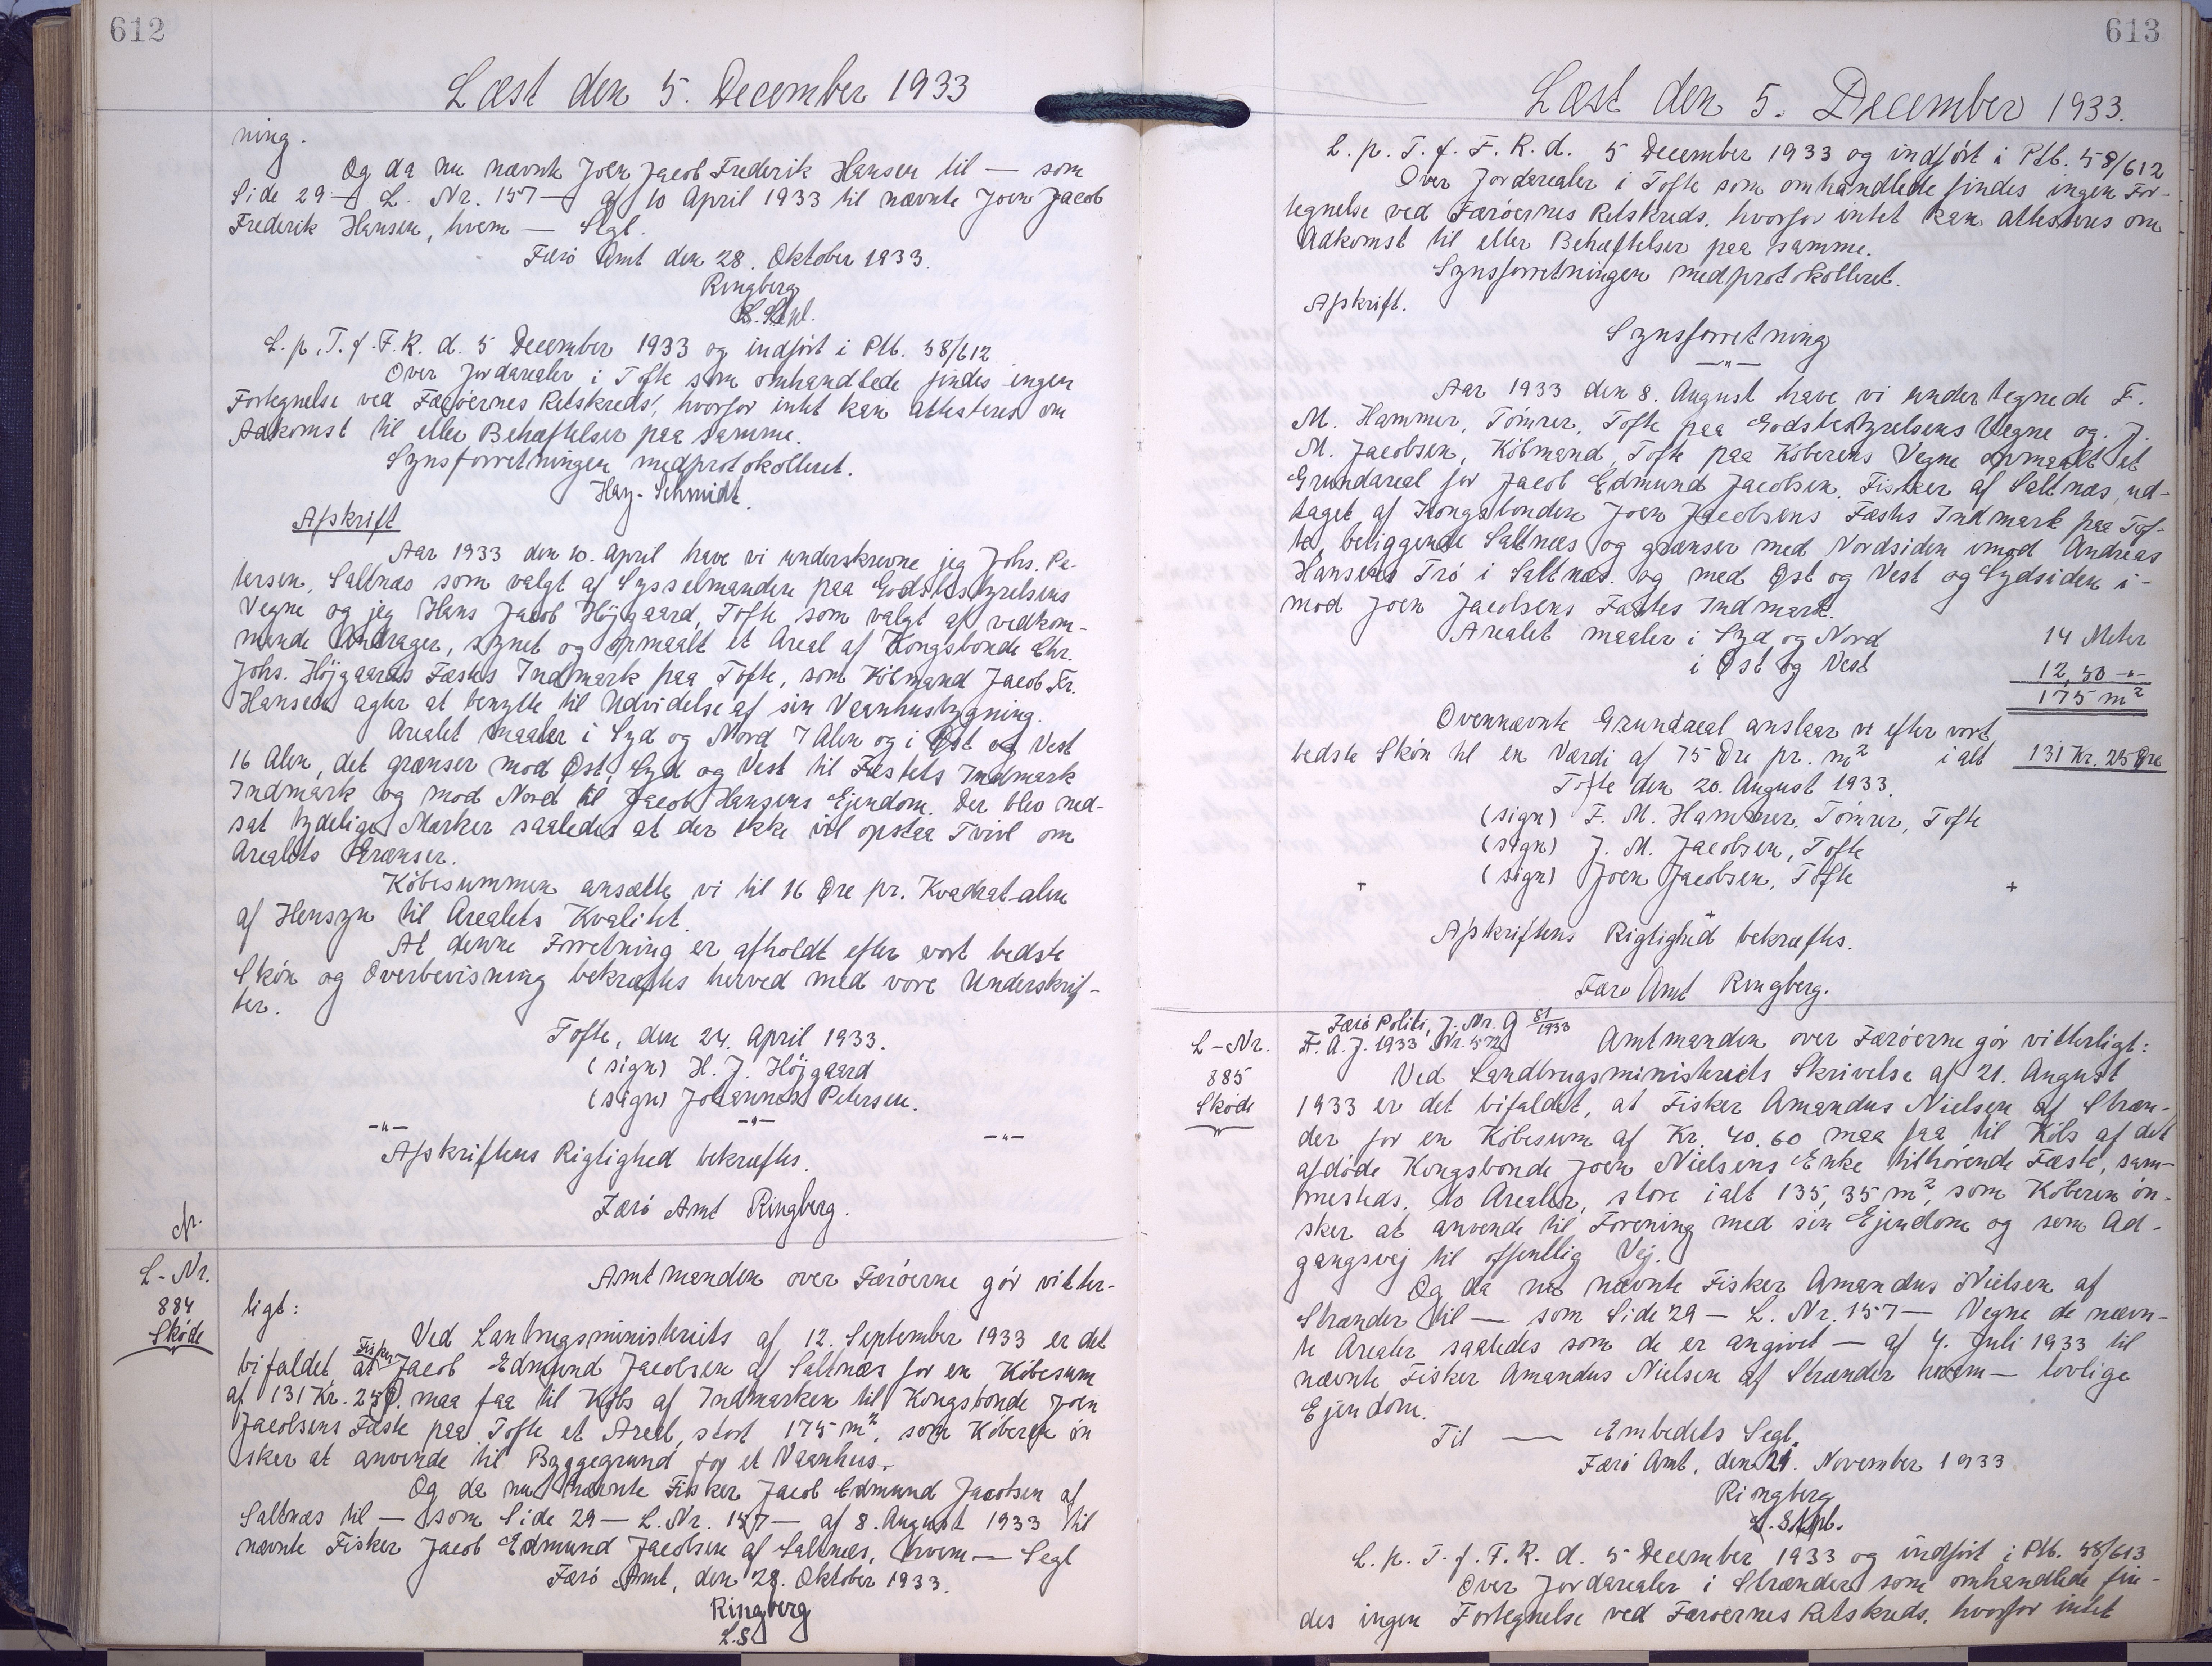 612
Læst den 5. December 1933
ning.
Og da nu nævnte Joen Jacob Frederik Hansen til — som
Side 29 — L. Nr. 157 — af 10 April 1933 til nævnte Joen Jacob
Frederik Hansen, hvem — Segl.
Færö Amt den 28. Oktober 1933.
Ringberg
L. p. T. f. F. R. d. 5 December 1933 og indfört i Ptb. 58/612
Over Jordarealer i Tofte som omhandlede findes ingen
Fortegnelse ved Færöernes Retskreds, hvorfor intet kan attesteres om
Adkomst til eller Behæftelser paa samme.
Synsforretningen medprotokolleret.
Hay-Schmidt.
Afskrift
Aar 1933 den 10. April have vi underskrevne jeg Johs. Pe-
tersen, Saltnæs som valgt af Sysselmanden paa Godsbestyrelsens
Vegne og jeg Hans Jacob Höjgaard, Tofte, som valgt af vedkom-
mende Andrager, synet og opmaalt et Areal af Kongsbonde Chr.
Johs. Höjgaards Fæstes Indmark paa Tofte, som Köbmand Jacob Fr.
Hansen agter at benytte til Udvidelse af sin Vaanhusbygning.
Arealet maaler i Syd og Nord 7 Alen og i Øst og Vest
16 Alen, det grænser mod Øst, Syd og Vest til Fæstets Indmark
Indmark og mod Nord til Jacob Hansens Ejendom. Der blev ned-
sat tydelige Mærker saaledes at der ikke vil opstaa Tvivl om
Arealets Grænser.
Köbesummen ansætte vi til 16 Øre pr. Kvadrat-alen
af Hensyn til Arealets Kvalitet.
At denne Forretning er afholdt efter vort bedste
Skön og Overbevisning bekræftes herved med vore Underskrif-
ter.
Tofte, den 24. April 1933.
(sign) H. J. Höjgaard
(sign) Johannes Petersen.
-"- -"- -"-
Afskriftens Rigtighed bekræftes.
Færö Amt Ringberg.
L-Nr.
884
Sköde
Amtmanden over Færöerne gör vitter-
ligt:
Ved Lanbrugsministeriets af 12. September 1933 er det
bifaldet, at Fisker Jacob Edmund Jacobsen af Saltnæs for en Köbesum
af 131 Kr. 25 Ø. maa faa til Köbs af Indmarken til Kongsbonde Joen
Jacobsens Fæste paa Tofte et Areal, stort 175 m², som Köberen ön
sker at anvende til Byggegrund for et Vaanhus.
Og da nu nævnte Fisker Jacob Edmund Jacobsen af
Saltnæs til — som Side 29 — L. Nr. 157 — af 8. August 1933 til
nævnte Fisker Jacob Edmund Jacobsen af Saltnæs, hvem — Segl
Færö Amt, den 28. Oktober 1933.
Ringberg
L.S.
613
Læst den 5. December 1933.
L. p. T. f. F. R. d. 5 December 1933 og indfört i Ptb. 58/612
Over Jordarealer i Tofte som omhandlede findes ingen For-
tegnelse ved Færöernes Retskreds, hvorfor intet kan attesteres om
Adkomst til eller Behæftelser paa samme.
Synsforretningen medprotokolleret.
Afskrift.
Synsforretning
-"-
Aar 1933 den 8. August have vi undertegnede F.
M. Hammer, Tömrer, Tofte paa Godsbestyrelsens Vegne og J.
M. Jacobsen, Köbmand, Tofte paa Köberens Vegne opmaalt et
Grundareal for Jacob Edmund Jacobsen, Fisker af Saltnæs, ud-
taget af Kongsbonden Joen Jacobsens Fæstes Indmark paa Tof-
te, beliggende Saltnæs og grænser med Nordsiden imod Andreas
Hansens Trö i Saltnæs. og med Øst og Vest og Sydsiden i-
mod Joen Jacobsens Fæstes Indmark.
Arealet maaler i Syd og Nord 14 Meter
i Øst og Vest 12,50 -"-
175 m²
Ovennævnte Grundareal anslaar vi efter vort
bedste Skön til en Værdi af 75 Øre pr. m² ialt 131 Kr. 25 Øre
Tofte den 20. August 1933.
(sign) F. M. Hammer, Tömrer, Tofte
(sign) J. M. Jacobsen, Tofte
(sign) Joen Jacobsen, Tofte
Afskriftens Rigtighed bekræftes.
Færö Amt Ringberg.
L-Nr.
885
Sköde
Færö Politi, J. Nr. G 81/1933
F. A. J. 1933 Nr. 572
Amtmanden over Færöerne gör vitterligt:
Ved Landbrugsministeriets Skrivelse af 21. August
1933 er det bifaldet, at Fisker Amandus Nielsen af Stræn-
der for en Köbesum af Kr. 40.60 maa faa til Köbs af det
afdöde Kongsbonde Joen Nielsens Enke tilhörende Fæste, sam-
mesteds, to Arealer, store ialt 135,35 m², som Köberen ön-
sker at anvende til Forening med sin Ejendom og som Ad-
gangsvej til offentlig Vej.
Og da nu nævnte Fisker Amandus Nielsen af
Strænder til — som Side 29 — L. Nr. 157 — Vegne de nævn-
te Arealer saaledes som de er angivet — af 4. Juli 1933 til
nævnte Fisker Amandus Nielsen af Strænder hvem — lovlige
Ejendom.
Til — Embedets Segl.
Færö Amt, den 21. November 1933
Ringberg
L. p. T. f. F. R. d. 5 December 1933 og indfört i Ptb. 58/613
Over Jordarealer i Strænder som omhandlede fin-
des ingen Fortegnelse ved Færöernes Retskreds, hvorfor intet